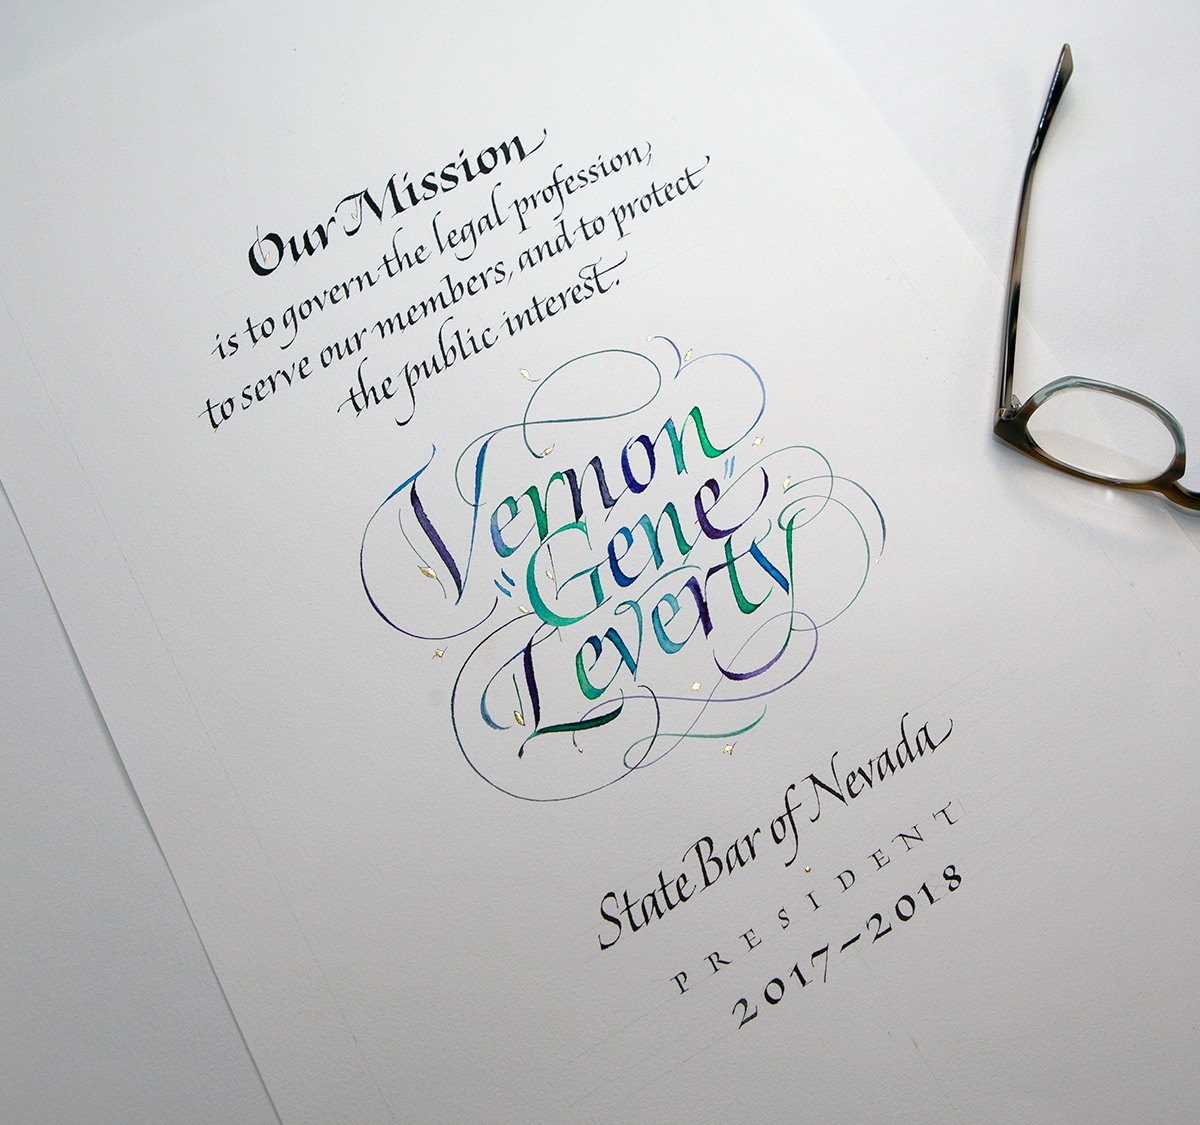 Our Mission
is to govern the legal profession,
to serve our members, and to protect
the public interest.
Vernon
"Gene"
Leverty
State Bar of Nevada
PRESIDENT
2017–2018